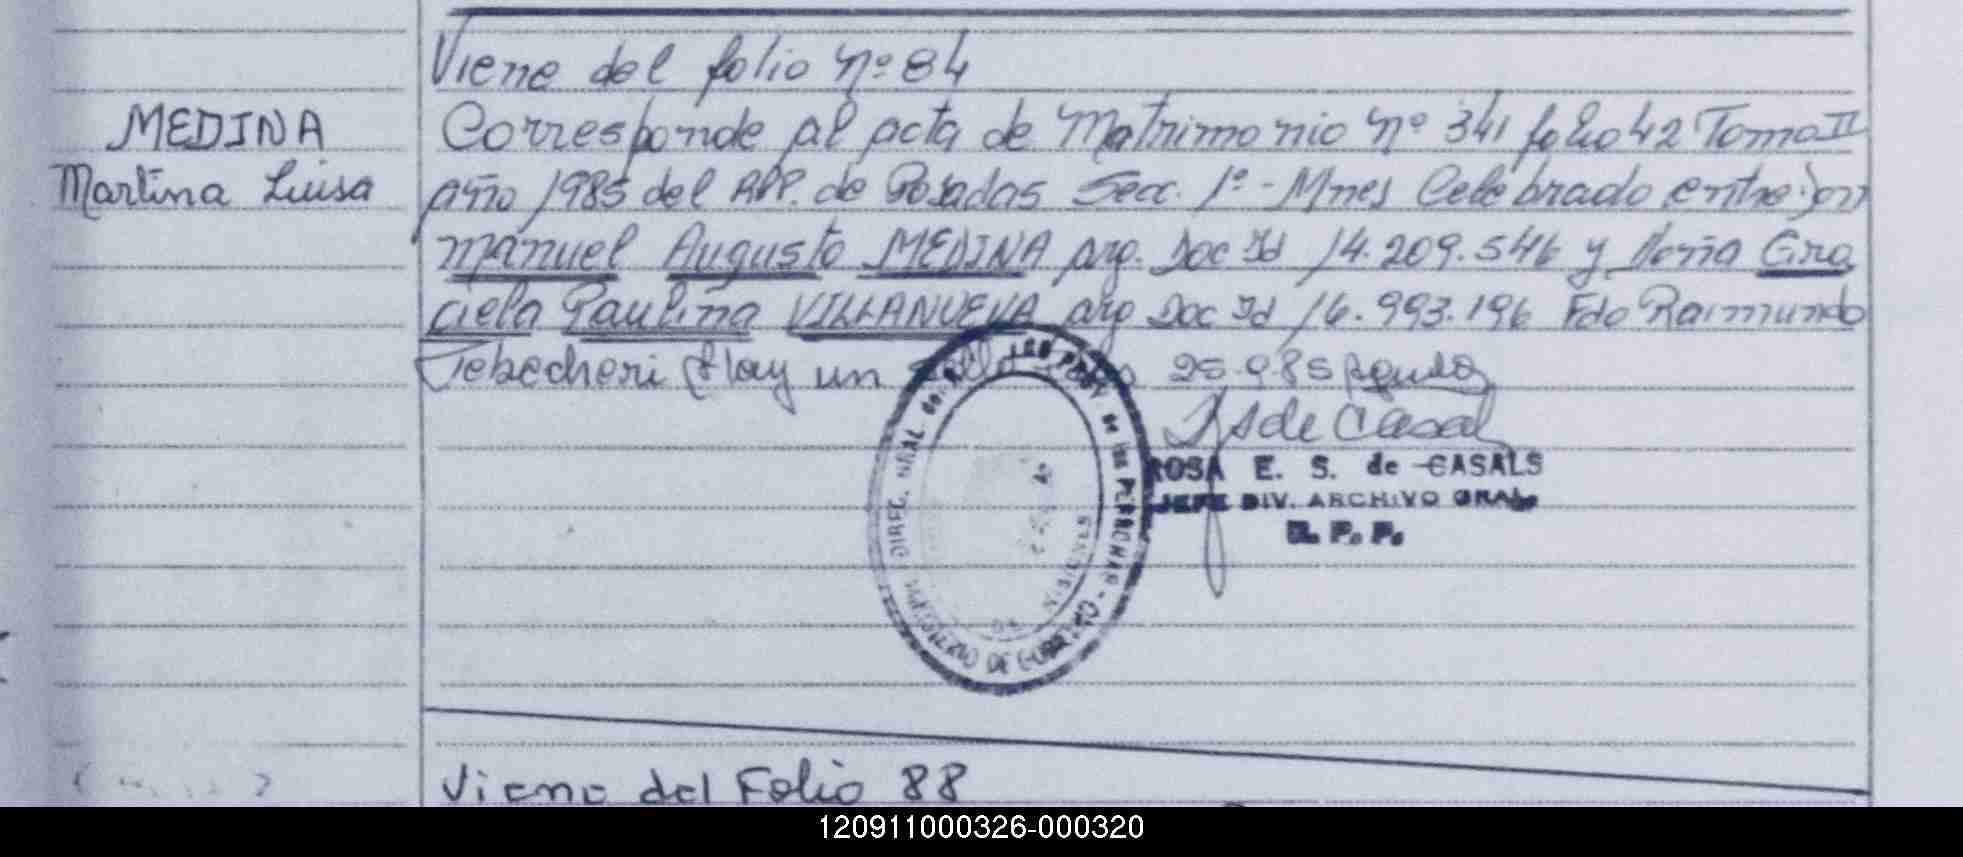 Viene del folio nº 84
MEDINA
Martina Luisa
Corresponde al acta de Matrimonio nº 341 folio 42 Tomo II
año 1985 del RPP. de Posadas Secc. 1º - Mnes Celebrado entre: Don
Manuel Augusto MEDINA arg. Doc Id 14.209.546 y Doña Gra
ciela Paulina VILLANUEVA arg Doc Id 16.993.196 Fdo Raimundo
Tebecheri Hay un sello 25.9.85
ROSA E. S. de CASALS
JEFE DIV. ARCHIVO GRAL.
R. P. P.
DIREC. GRAL DE LAS PERSONAS
MINISTERIO DE GOBIERNO
MISIONES
Viene del Folio 88
120911000326-000320